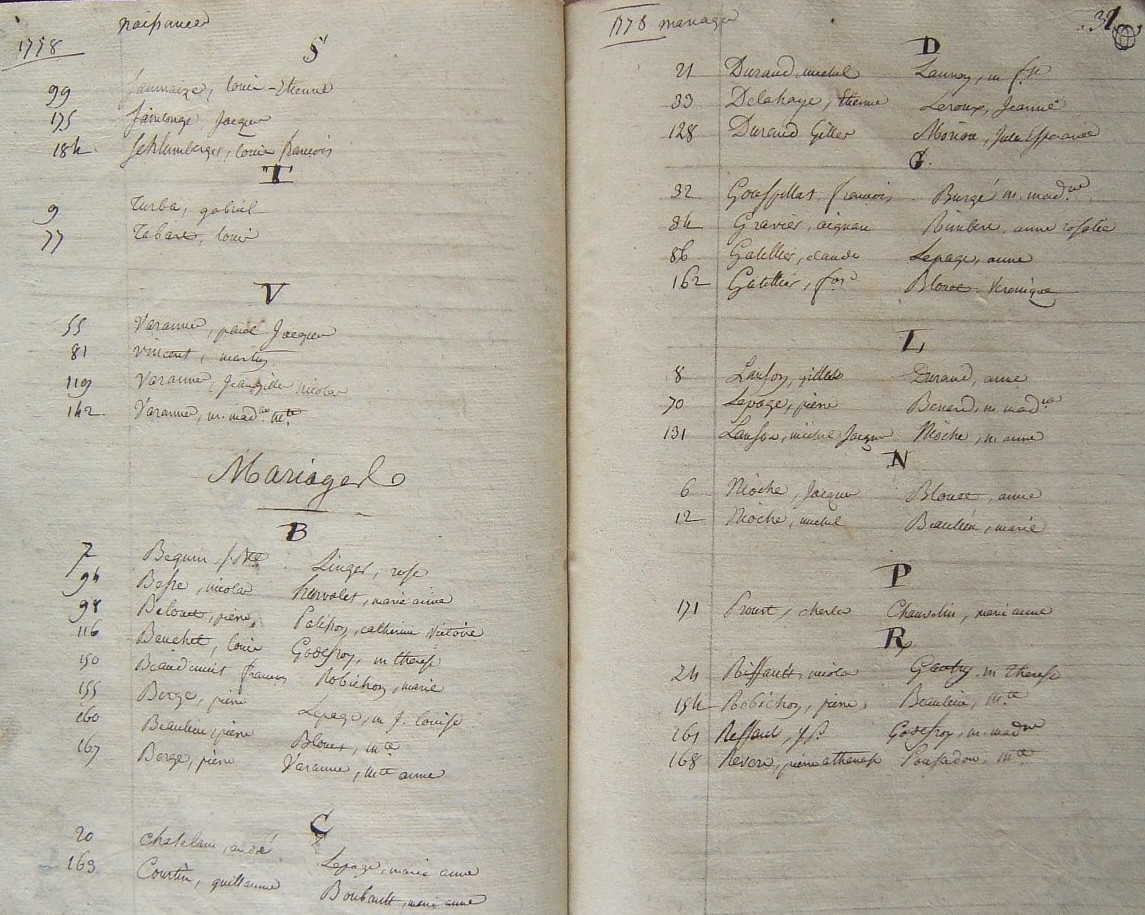 1778 naissances
S
99 Jaumaize, louis-Etienne
175 Sainlonge Jacques
184 Schlumberger, louis françois
T
9 Turba, gabriel
77 Tabart, louis
V
55 Varanne, paul Jacques
81 vincent, martin
119 Varanne, Jean gille nicolas
142 Varanne, m. mad.ne
Mariages
B
7 Beguin, Linger, rose
94 Besse, nicolas marie anne
98 pierre, catherine Victoire
116 Bauchet, louis Godefroy, m therese
150 françois Robichon, marie
155 Borge, pierre Lepage, m f. louise
160 Beaulieu, pierre Blouet, m.tte
167 Borge, pierre Varanne, m.tte anne
C
20 Chatelain, andré Lepage, marie anne
163 Courtin, guillaume Boubault, marie anne
1778 mariages 31
D
21 Durand, michel Launoy, m f.se
33 Delahaye, Etienne Leroux, Jeanne
128 Durand Gilles Moriou,
G.
32 françois Burgé m. mad.ne
34 Gravier, aignan anne rosalie
86 Gatellier, claude Lepage, anne
162 Gatellier, f.ois Blouet Veronique
L
8 Lanson, gilles Durand, anne
70 Lepage, pierre Benard, m mad.ne
131 Lanson, michel Jacques Nioche, m anne
N
6 Nioche, Jacques Blouet, anne
12 Nioche, michel Beaulieu, marie
P
171 Proust, charles Chauvelin, marie anne
R
24 Riffault, nicolas Gautry, m therese
154 Robichon, pierre, Beaulieu, m.tte
161 Riffault, J.B. Godefroy, m. mad.ne
168 pierre athanase m.tte